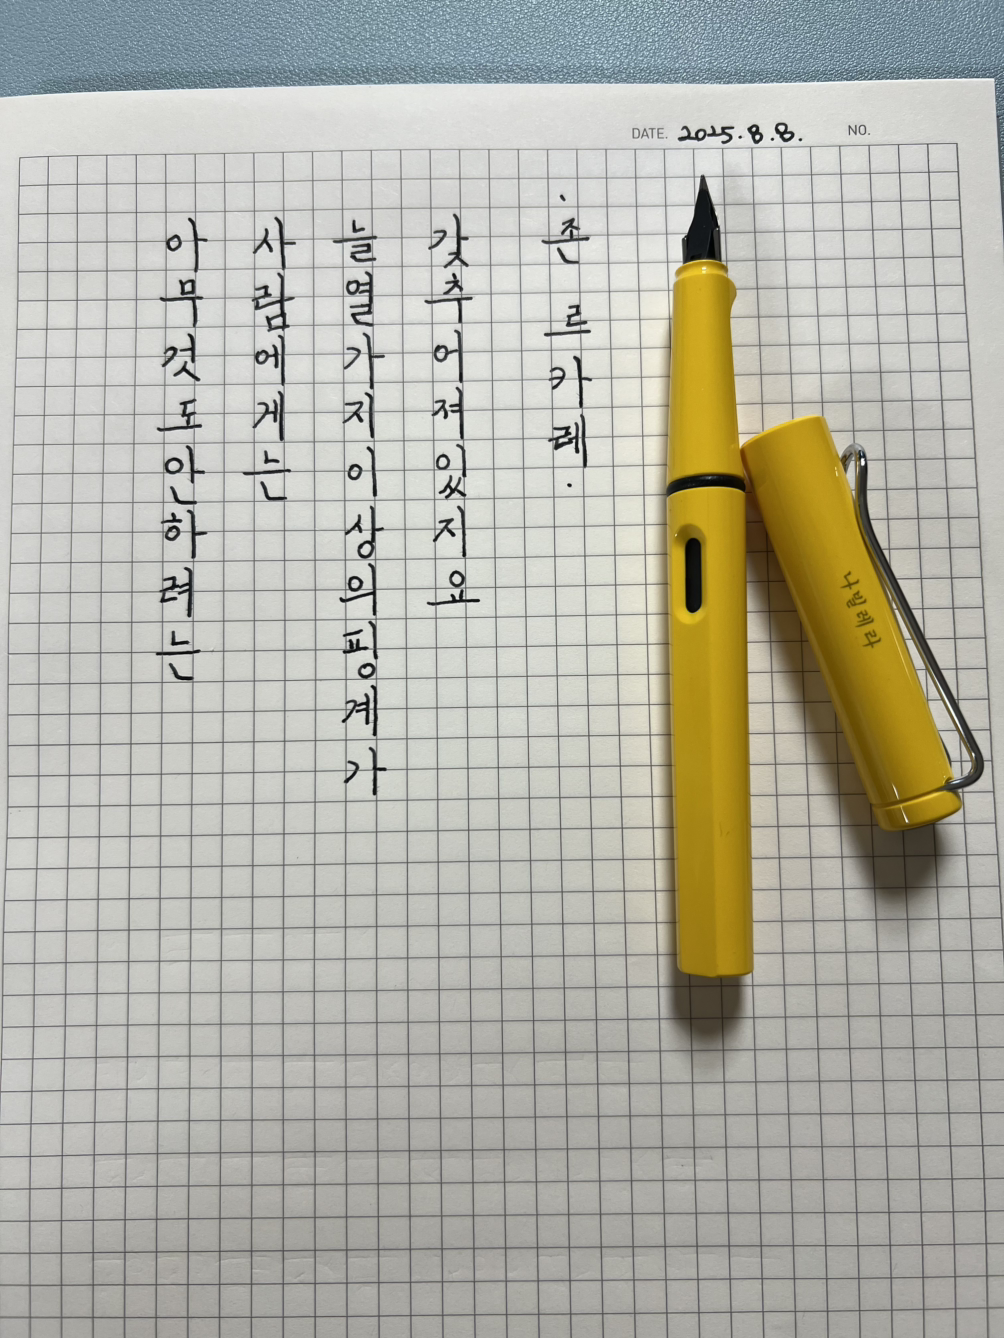 DATE. 2025.8.8. NO.
아무것도안하려는
사람에게는
늘열가지이상의핑계가
갖추어져있지요
· 존 르카레 ·
나빌레라